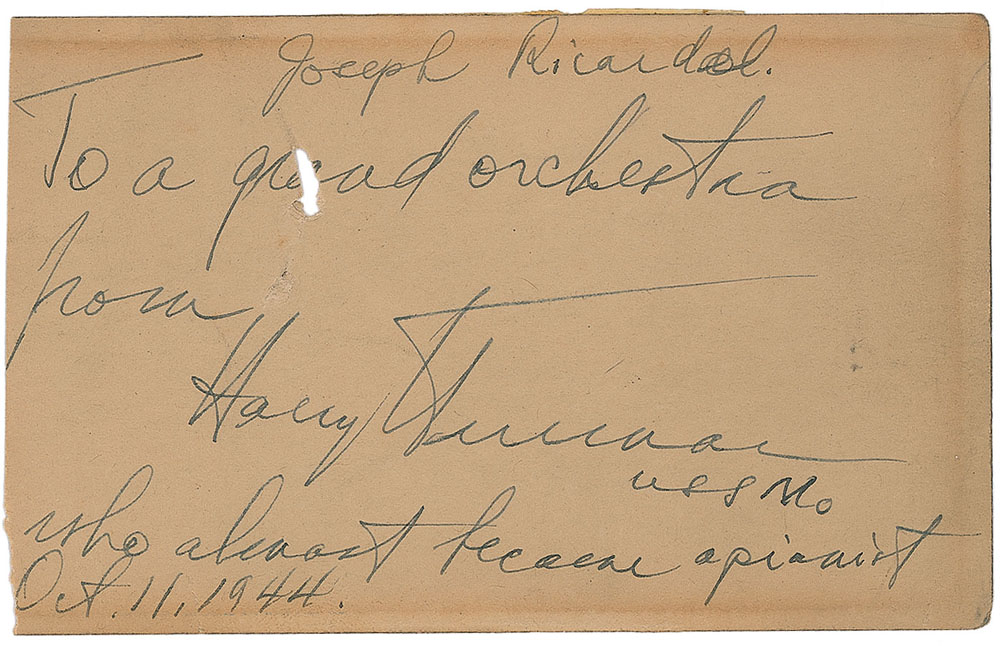 Joseph Ricardel.
To a grand orchestra
from
Harry Truman
USS Mo
who almost became a pianist
Oct. 11, 1944.